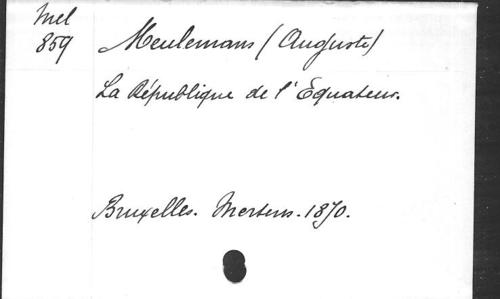 Mel
859
Meulemans (Auguste)
La République de l'Equateur.
Bruxelles. Mertens. 1870.